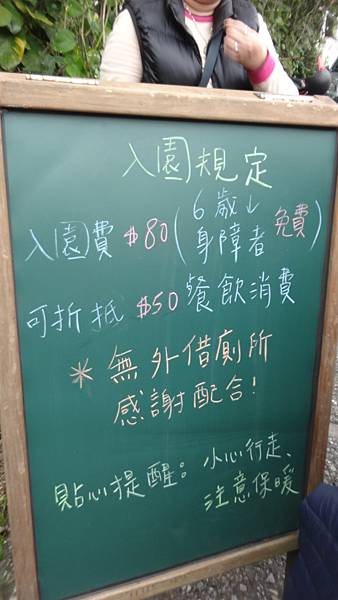 入園規定
入園費$80(6歲↓身障者免費)
可折抵$50餐飲消費
*無外借廁所
感謝配合!
貼心提醒:小心行走、
注意保暖